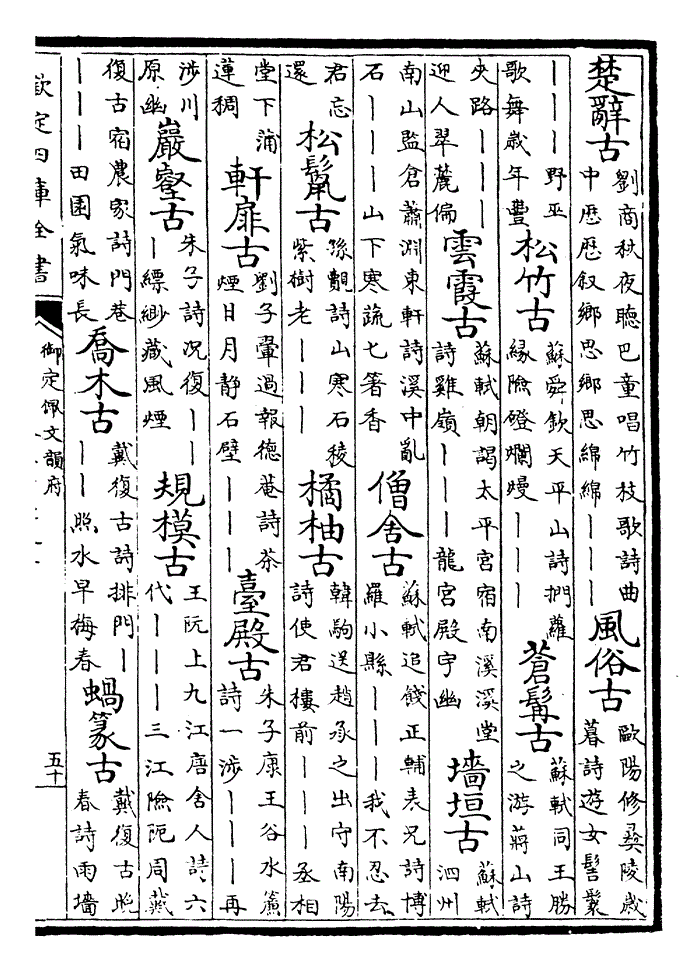 楚辭古 劉商秋夜聽巴童唱竹枝歌詩曲
中歷歷叙鄉思鄉思綿綿｜｜｜ 風俗古 歐陽修夷陵歲
暮詩遊女髻鬟
｜｜｜野巫
歌舞歲年豐 松竹古 蘇舜欽天平山詩捫蘿
緣險磴爛熳｜｜｜ 蒼髯古 蘇軾同王勝
之游蔣山詩
夾路｜｜｜
迎人翠麓偏 雲霞古 蘇軾朝謁太平宮宿南溪溪堂
詩雞嶺｜｜｜龍宮殿宇幽 墻垣古 蘇軾
泗州
南山監倉蕭淵東軒詩溪中亂
石｜｜｜山下寒蔬七箸香 僧舍古 蘇軾追餞正輔表兄詩博
羅小縣｜｜｜我不忍去
君忘
還 松鬣古 孫覿詩山寒石稜
紫樹老｜｜｜ 橘柚古 韓駒送趙承之出守南陽
詩使君樓前｜｜｜丞相
堂下蒲
蓮稠 軒扉古 劉子翬過報德菴詩茶
煙日月静石壁｜｜｜ 臺殿古 朱子康王谷水簾
詩一涉｜｜｜再
涉川
原幽 巖壑古 朱子詩況復｜｜
｜縹緲藏風煙 規模古 王阮上九江唐舍人詩六
代｜｜｜三江險阨周 戴
復古宿農家詩門巷
｜｜｜田園氣味長 喬木古 戴復古詩排門｜
｜｜照水早梅春 蝸篆古 戴復古晚
春詩雨墻
欽定四庫全書
御定佩文韻府
五十